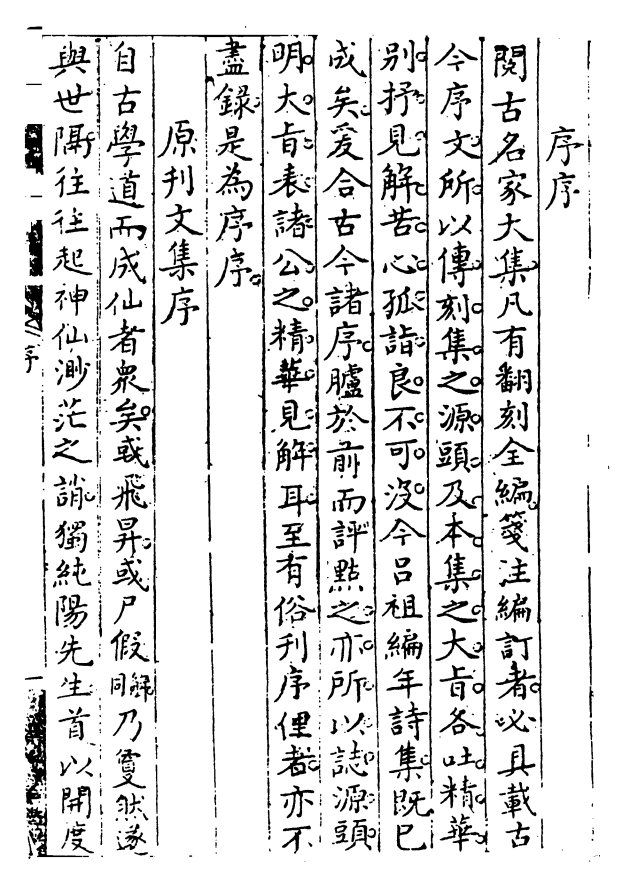 序序
閱古名家大集凡有翻刻全編箋注編訂者必具載古
今序文所以傳刻集之源頭及本集之大旨各吐精華
別抒見解苦心孤詣良不可沒今呂祖編年詩集既已
成矣爰合古今諸序臚於前而評點之亦所以誌源頭
明大旨表諸公之精華見解耳至有俗刊序俚者亦不
盡錄是為序序
原刊文集序
自古學道而成仙者衆矣或飛昇或尸假解同乃敻然遂
與世隔往往起神仙渺茫之誚獨純陽先生首以開度
序